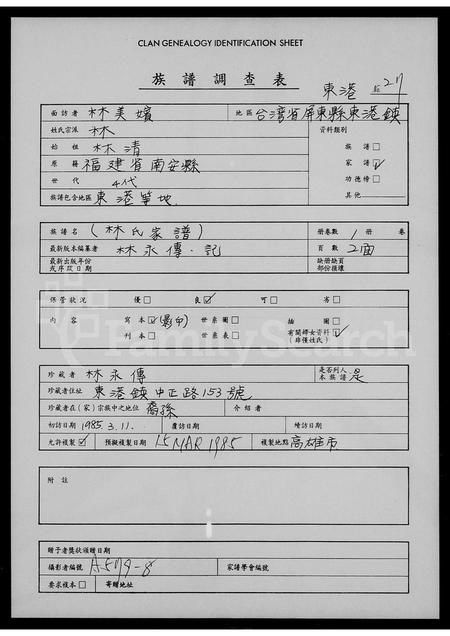 CLAN GENEALOGY IDENTIFICATION SHEET
族譜調查表
東港
面訪者 林美嬪 地區 台灣省屏東縣東港鎮
姓氏宗派 林 資料類別
始祖 林清 族譜□
原籍 福建省南安縣 家譜☑
世代 4代 功德榜□
族譜包含地區 東港等地 其他
族譜名 (林氏家譜) 册卷數 1 册 卷
最新版本編纂者 林永傳·記 頁數 2面
最新出版年份 或序跋日期 缺册缺頁 部份損壞
保管狀況 優□ 良☑ 可□ 劣□
內容 寫本☑(影印) 世系圖□ 插圖□ 有關婦女資料☑ (非僅姓氏)
刊本□ 世系表□
FamilySearch
珍藏者 林永傳 是否列入本族譜 是
珍藏者住址 東港鎮中正路153號
珍藏者在(家)宗族中之地位 裔孫 介紹者
初訪日期 1985.3.11. 覆訪日期 續訪日期
允許複製☑ 預擬複製日期 15 MAR 1985 複製地點 高雄市
附註
贈予者獎狀頒贈日期
攝影者編號 A-579-8 家譜學會編號
要求複本□ 寄贈地址